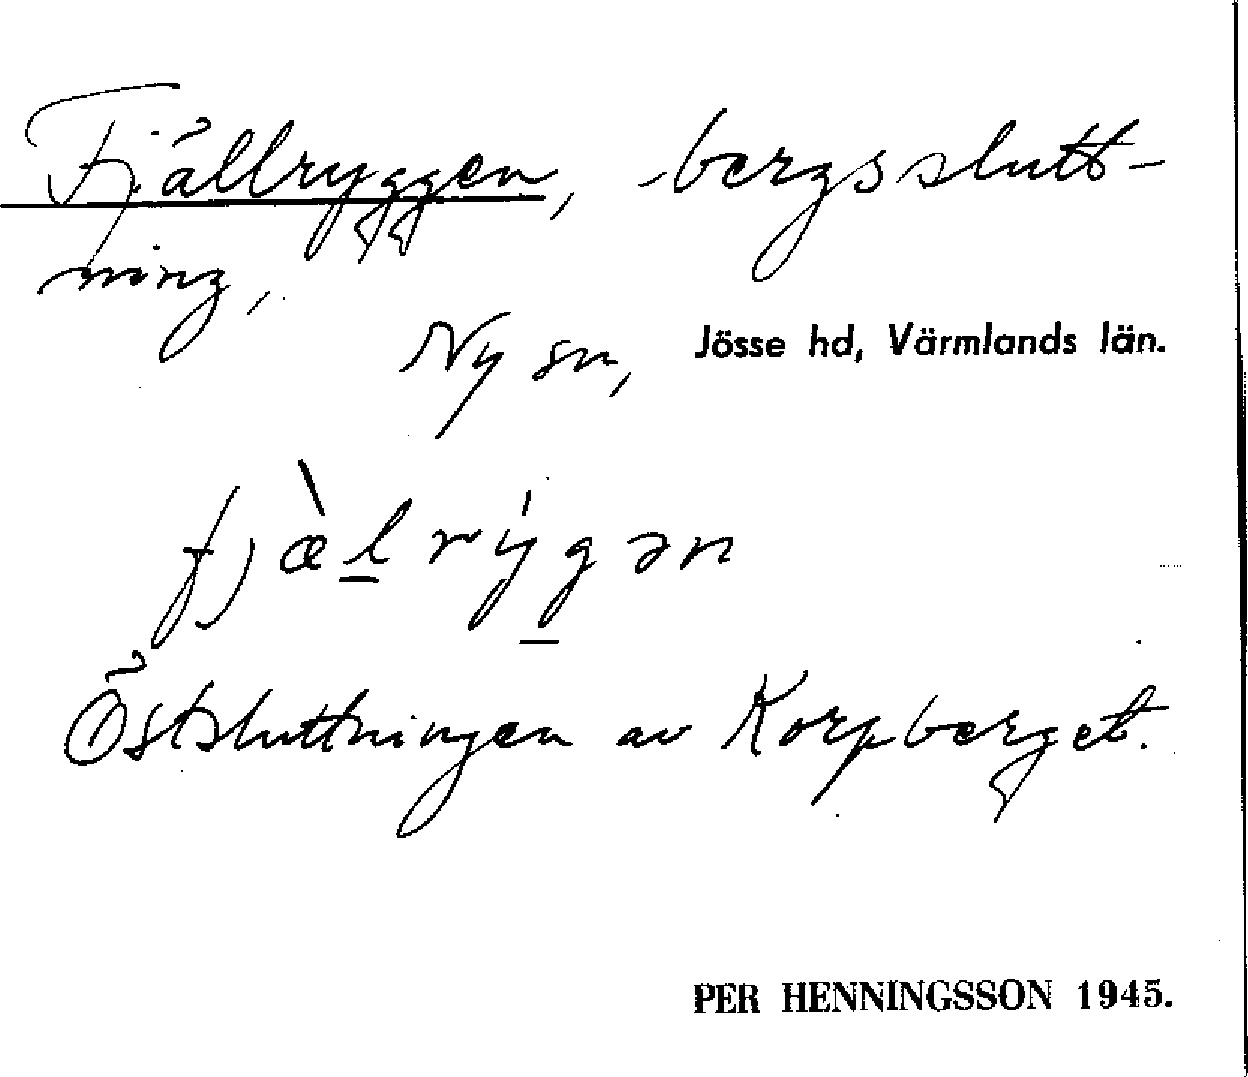 Fjällryggen, -bergsslutt-
ning,
Ny sn, Jösse hd, Värmlands län.
fjæ̀l̲rýg̲ən
Östsluttningen av Korpberget.
PER HENNINGSSON 1945.